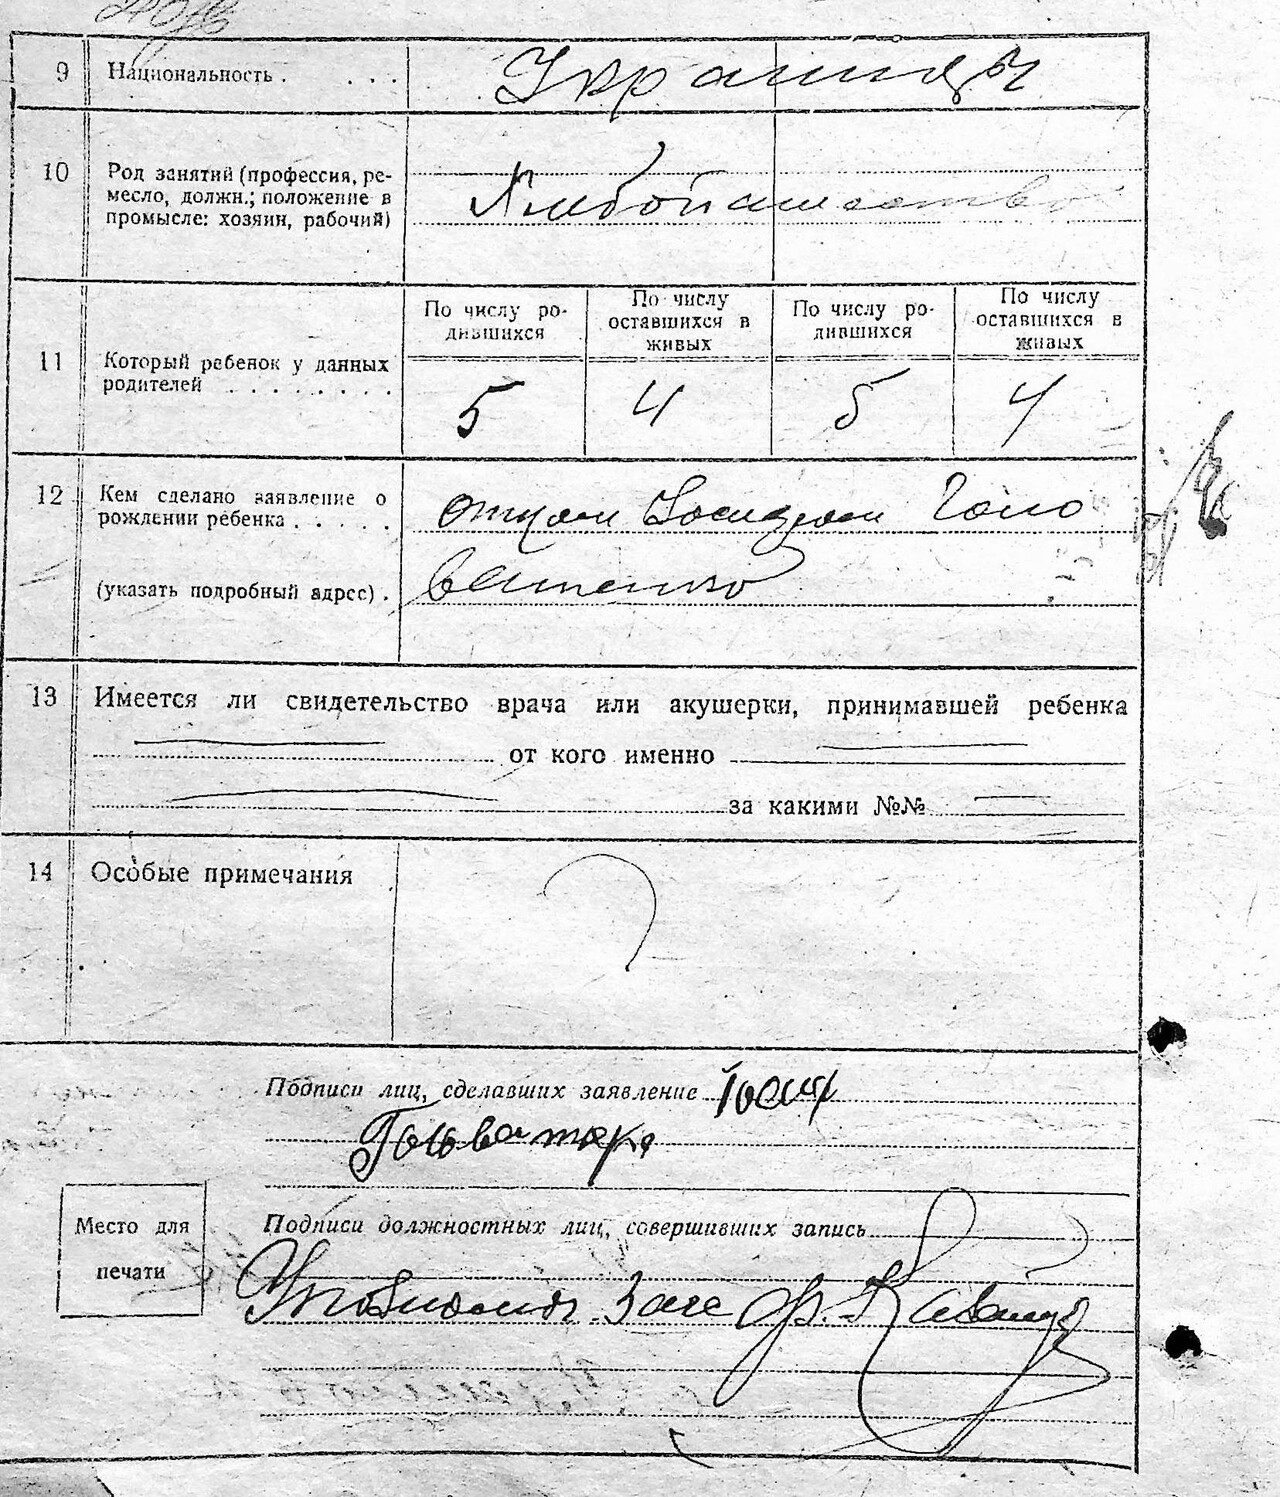 9 Национальность . . . . Украинцы
10 Род занятий (профессия, ре-
месло, должн.; положение в
промысле: хозяин, рабочий)
Хлебопашество
По числу ро-
дившихся
По числу
оставшихся в
живых
По числу ро-
дившихся
По числу
оставшихся в
живых
11 Который ребенок у данных
родителей . . . . . . . .
5 4 5 4
12 Кем сделано заявление о
рождении ребенка . . . . .
отцом Голо
ватенко
(указать подробный адрес) .
13 Имеется ли свидетельство врача или акушерки, принимавшей ребенка
от кого именно
за какими №№
14 Особые примечания
Подписи лиц, сделавших заявление
Место для
печати
Подписи должностных лиц, совершивших запись
Загс